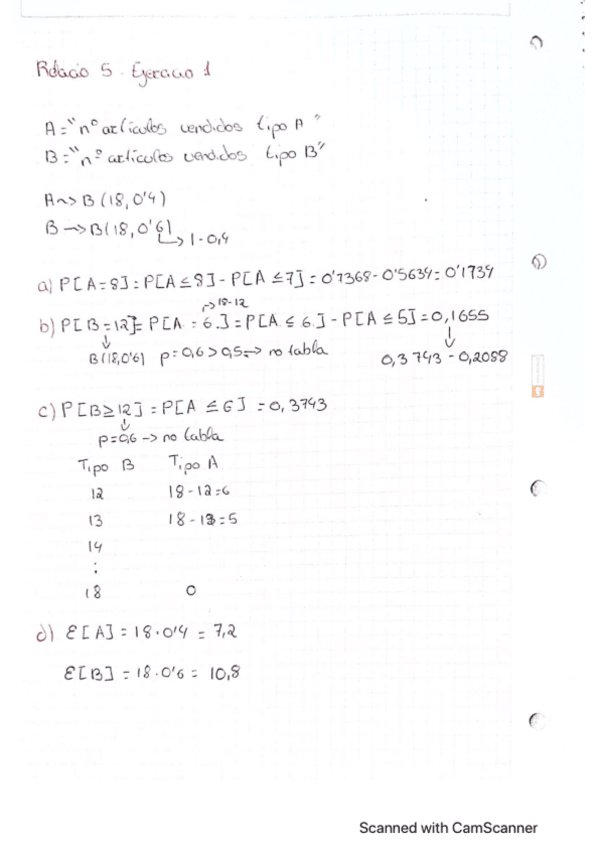 Relació 5. Ejercicio 1
A = "nº artículos vendidos tipo A"
B = "nº artículos vendidos tipo B"
A ~> B (18, 0'4)
B -> B(18, 0'6)
↳ 1 - 0,4
a) P[A = 8] = P[A ≤ 8] - P[A ≤ 7] = 0'7368 - 0'5634 = 0'1734
↱ 18-12
b) P[B = 12] = P[A = 6] = P[A ≤ 6] - P[A ≤ 5] = 0,1655
↓ ↓
B(18,0'6) p = 0,6 > 0,5 -> no tabla 0,3743 - 0,2088
c) P[B ≥ 12] = P[A ≤ 6] = 0,3743
↓
p = 0,6 -> no tabla
Tipo B Tipo A
12 18 - 12 = 6
13 18 - 13 = 5
14
:
18 0
d) E[A] = 18 · 0'4 = 7,2
E[B] = 18 · 0'6 = 10,8
Scanned with CamScanner